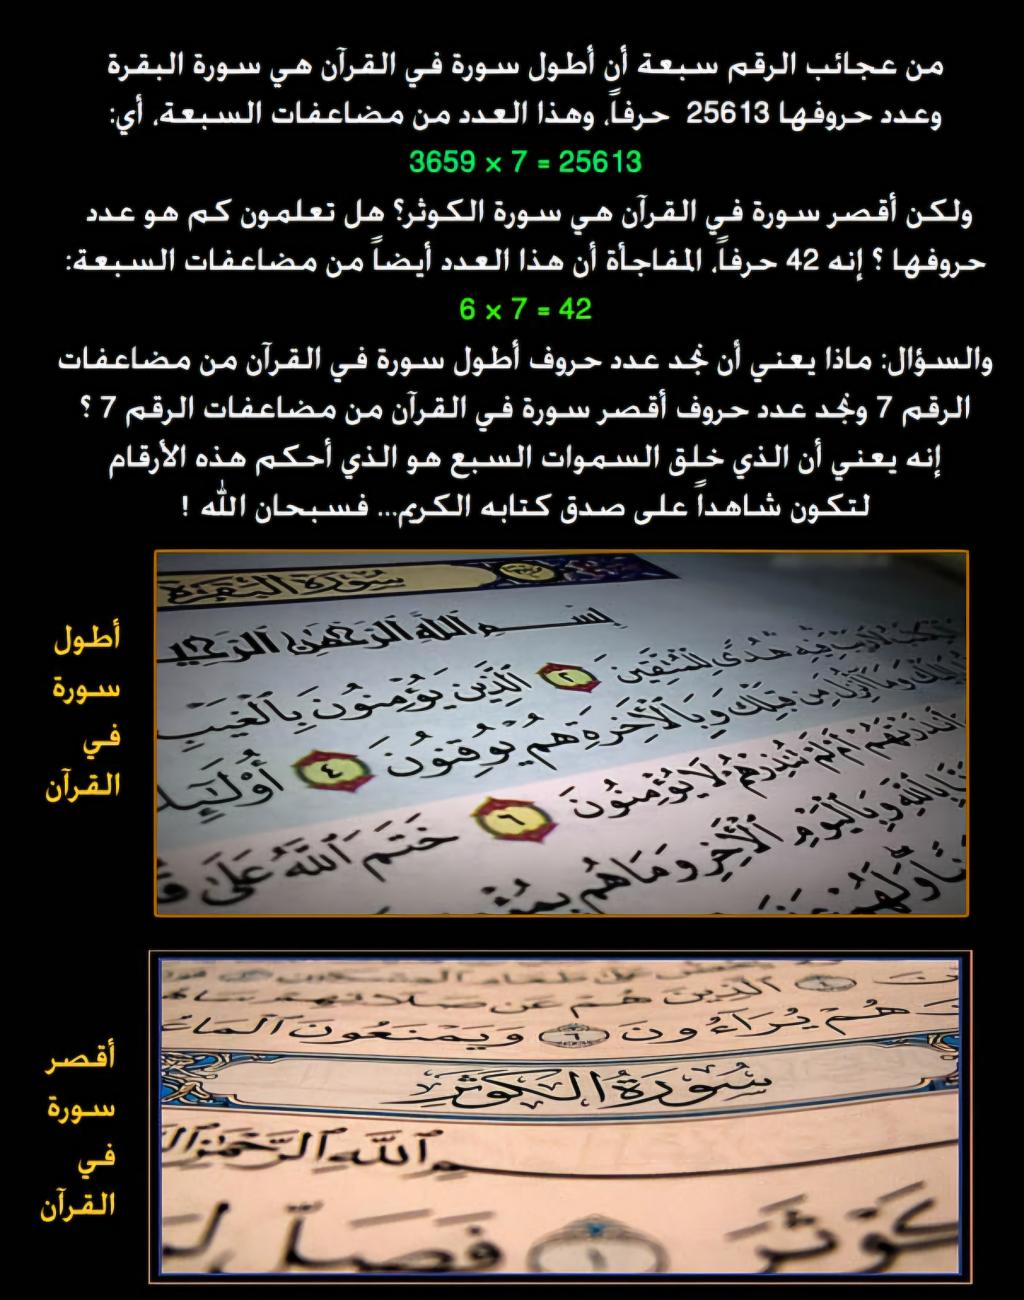 من عجائب الرقم سبعة أن أطول سورة في القرآن هي سورة البقرة
وعدد حروفها 25613 حرفاً، وهذا العدد من مضاعفات السبعة، أي:
3659 × 7 = 25613
ولكن أقصر سورة في القرآن هي سورة الكوثر؟ هل تعلمون كم هو عدد
حروفها ؟ إنه 42 حرفاً، المفاجأة أن هذا العدد أيضاً من مضاعفات السبعة:
6 × 7 = 42
والسؤال: ماذا يعني أن نجد عدد حروف أطول سورة في القرآن من مضاعفات
الرقم 7 ونجد عدد حروف أقصر سورة في القرآن من مضاعفات الرقم 7 ؟
إنه يعني أن الذي خلق السموات السبع هو الذي أحكم هذه الأرقام
لتكون شاهداً على صدق كتابه الكريم... فسبحان الله !
أطول
سورة
في
القرآن
سُورَةُ البَقَرَةِ
بِسْمِ اللَّهِ الرَّحْمَٰنِ
فِيهِ هُدًى لِّلْمُتَّقِينَ ٢ الَّذِينَ يُؤْمِنُونَ بِالْغَيْبِ
مِن قَبْلِكَ وَبِالْآخِرَةِ هُمْ يُوقِنُونَ ٤
أَمْ لَمْ تُنذِرْهُمْ لَا يُؤْمِنُونَ ٦ خَتَمَ اللَّهُ عَلَىٰ
بِاللَّهِ وَبِالْيَوْمِ الْآخِرِ وَمَا هُم
أقصر
سورة
في
القرآن
الَّذِينَ هُمْ عَن صَلَاتِهِمْ
هُمْ يُرَاءُونَ ٦ وَيَمْنَعُونَ
سُورَةُ الكَوْثَرِ
اللَّهِ الرَّحْمَٰنِ
١ فَصَلِّ